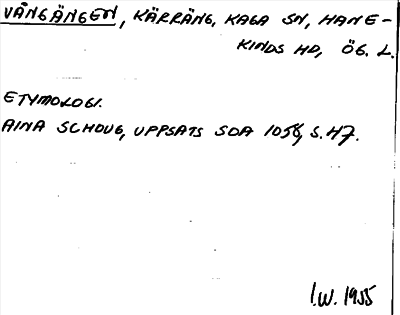 VÅNGÄNGEN, KÄRRÄNG, KAGA SN, HANE-
KINDS HD, ÖG. L.
ETYMOLOGI.
AINA SCHOUG, UPPSATS SOA 1058, S. 47.
I.W. 1955